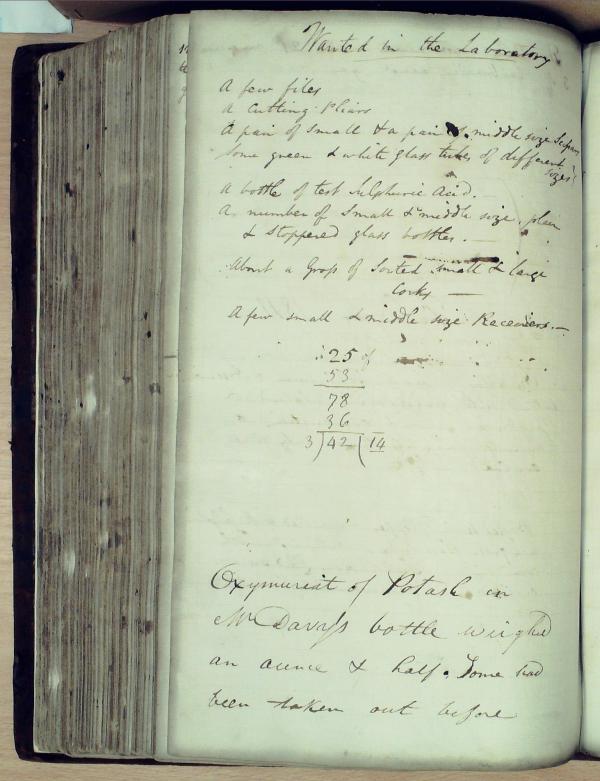 Wanted in the Laboratory
A few files
A Cutting Pliars
A pair of small & a pair middle size
Some green & white glass tubes of different
sizes
A bottle of test Sulphuric Acid.
A number of Small & middle size plain
& Stoppered glass bottles. —
About a Gross of Sorted Small & large
Corks —
A few small & middle size Receivers. —
25 of
53
78
36
3)42(14
Oxymuriat of Potash in
Mr Davy's bottle weighed
an ounce & half. Some had
been taken out before